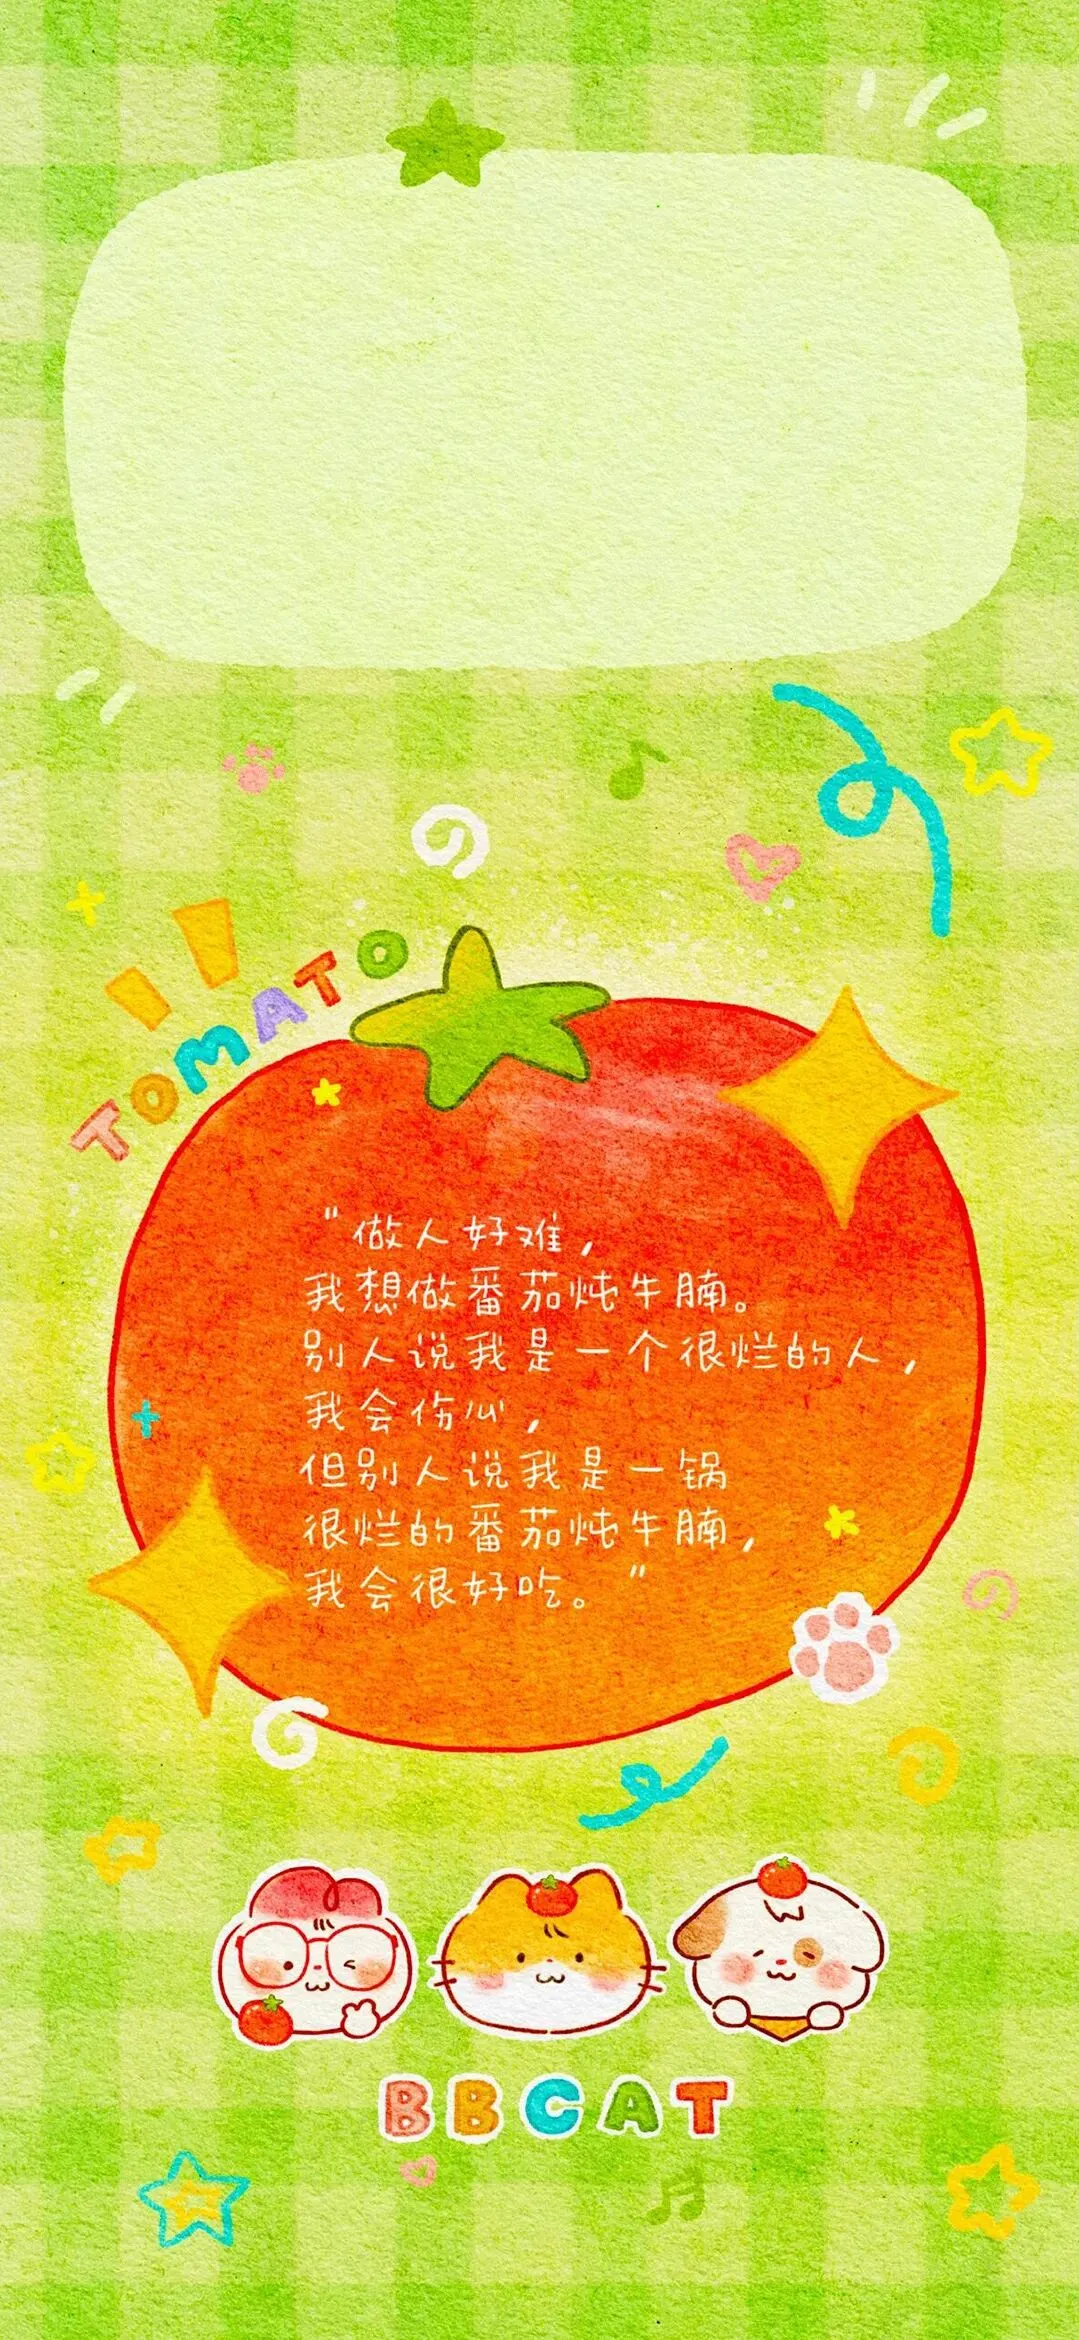 TOMATO
"做人好难，
我想做番茄炖牛腩。
别人说我是一个很烂的人，
我会伤心，
但别人说我是一锅
很烂的番茄炖牛腩，
我会很好吃。"
BBCAT